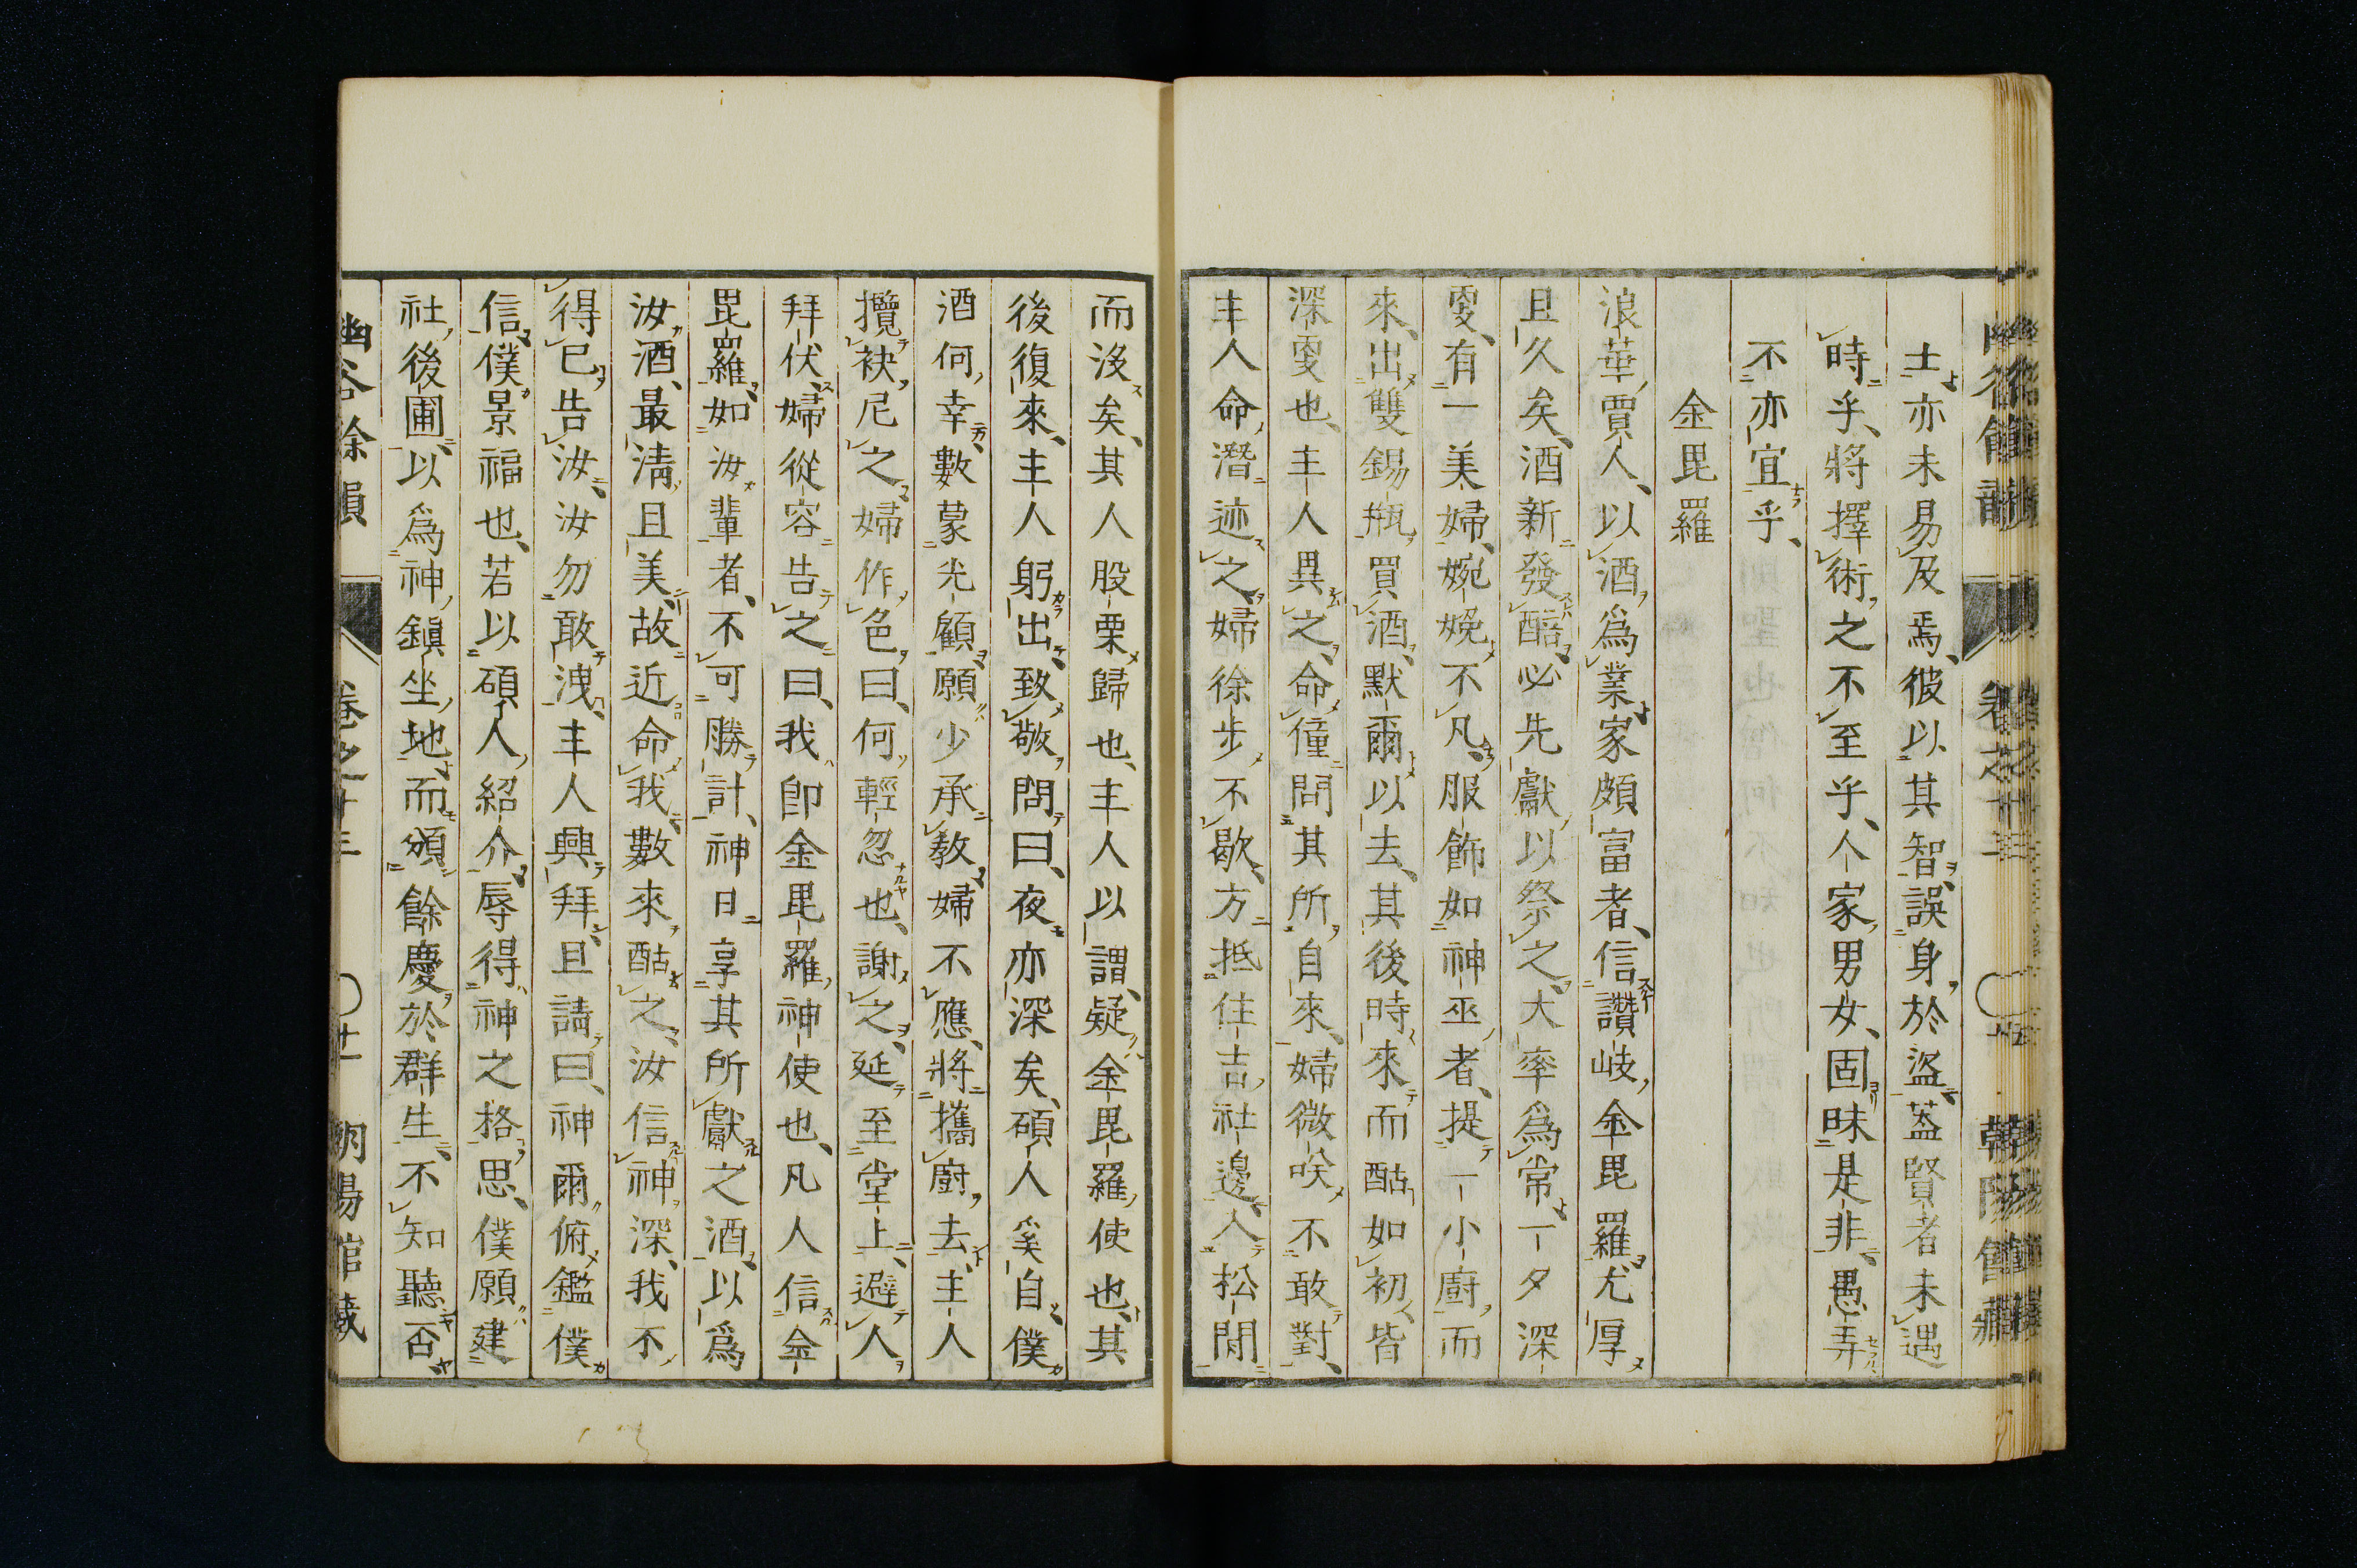 士亦未易及焉、彼以其智、誤身於盜、蓋賢者未遇
時乎、將擇術之不至乎、人家男女、固昧是非、愚弄
不亦宜乎、
金毘羅
浪華賈人、以酒爲業、家頗富者、信讚岐金毘羅、尤厚
且久矣、酒新發醅、必先獻以祭之、大率爲常、一夕深
更、有一美婦、婉娩不凡、服飾如神巫者、提一小廚、而
來、出雙錫瓶、買酒、默爾以去、其後時來而酤如初、皆
深更也、主人異之、命僮問其所自來、婦微咲、不敢對、
主人命潛迹之、婦徐步不歇、方抵住吉社邊、人松間
而沒矣、其人股栗歸也、主人以謂、疑金毘羅使也、其
後復來、主人躬出、致敬問曰、夜亦深矣、碩人奚自、僕
酒何幸數蒙光顧、願少承教、婦不應、將攜廚去、主人
攬袂尼之、婦作色曰、何輕忽也、謝之、延至堂上、避人
拜伏、婦從容告之曰、我卽金毘羅神使也、凡人信金
毘羅、如汝輩者、不可勝計、神日享其所獻之酒、以爲
汝酒、最淸且美、故近命我數來酤之、汝信神深、我不
得已告汝、汝勿敢洩、主人興拜、且請曰、神爾俯鑑僕
信、僕景福也、若以碩人紹介、辱得神之格思、僕願建
社後圃、以爲神鎭坐地、而頒餘慶於群生、不知聽否、
幽谷餘韻 卷之十三 ○廿一 朝陽館藏